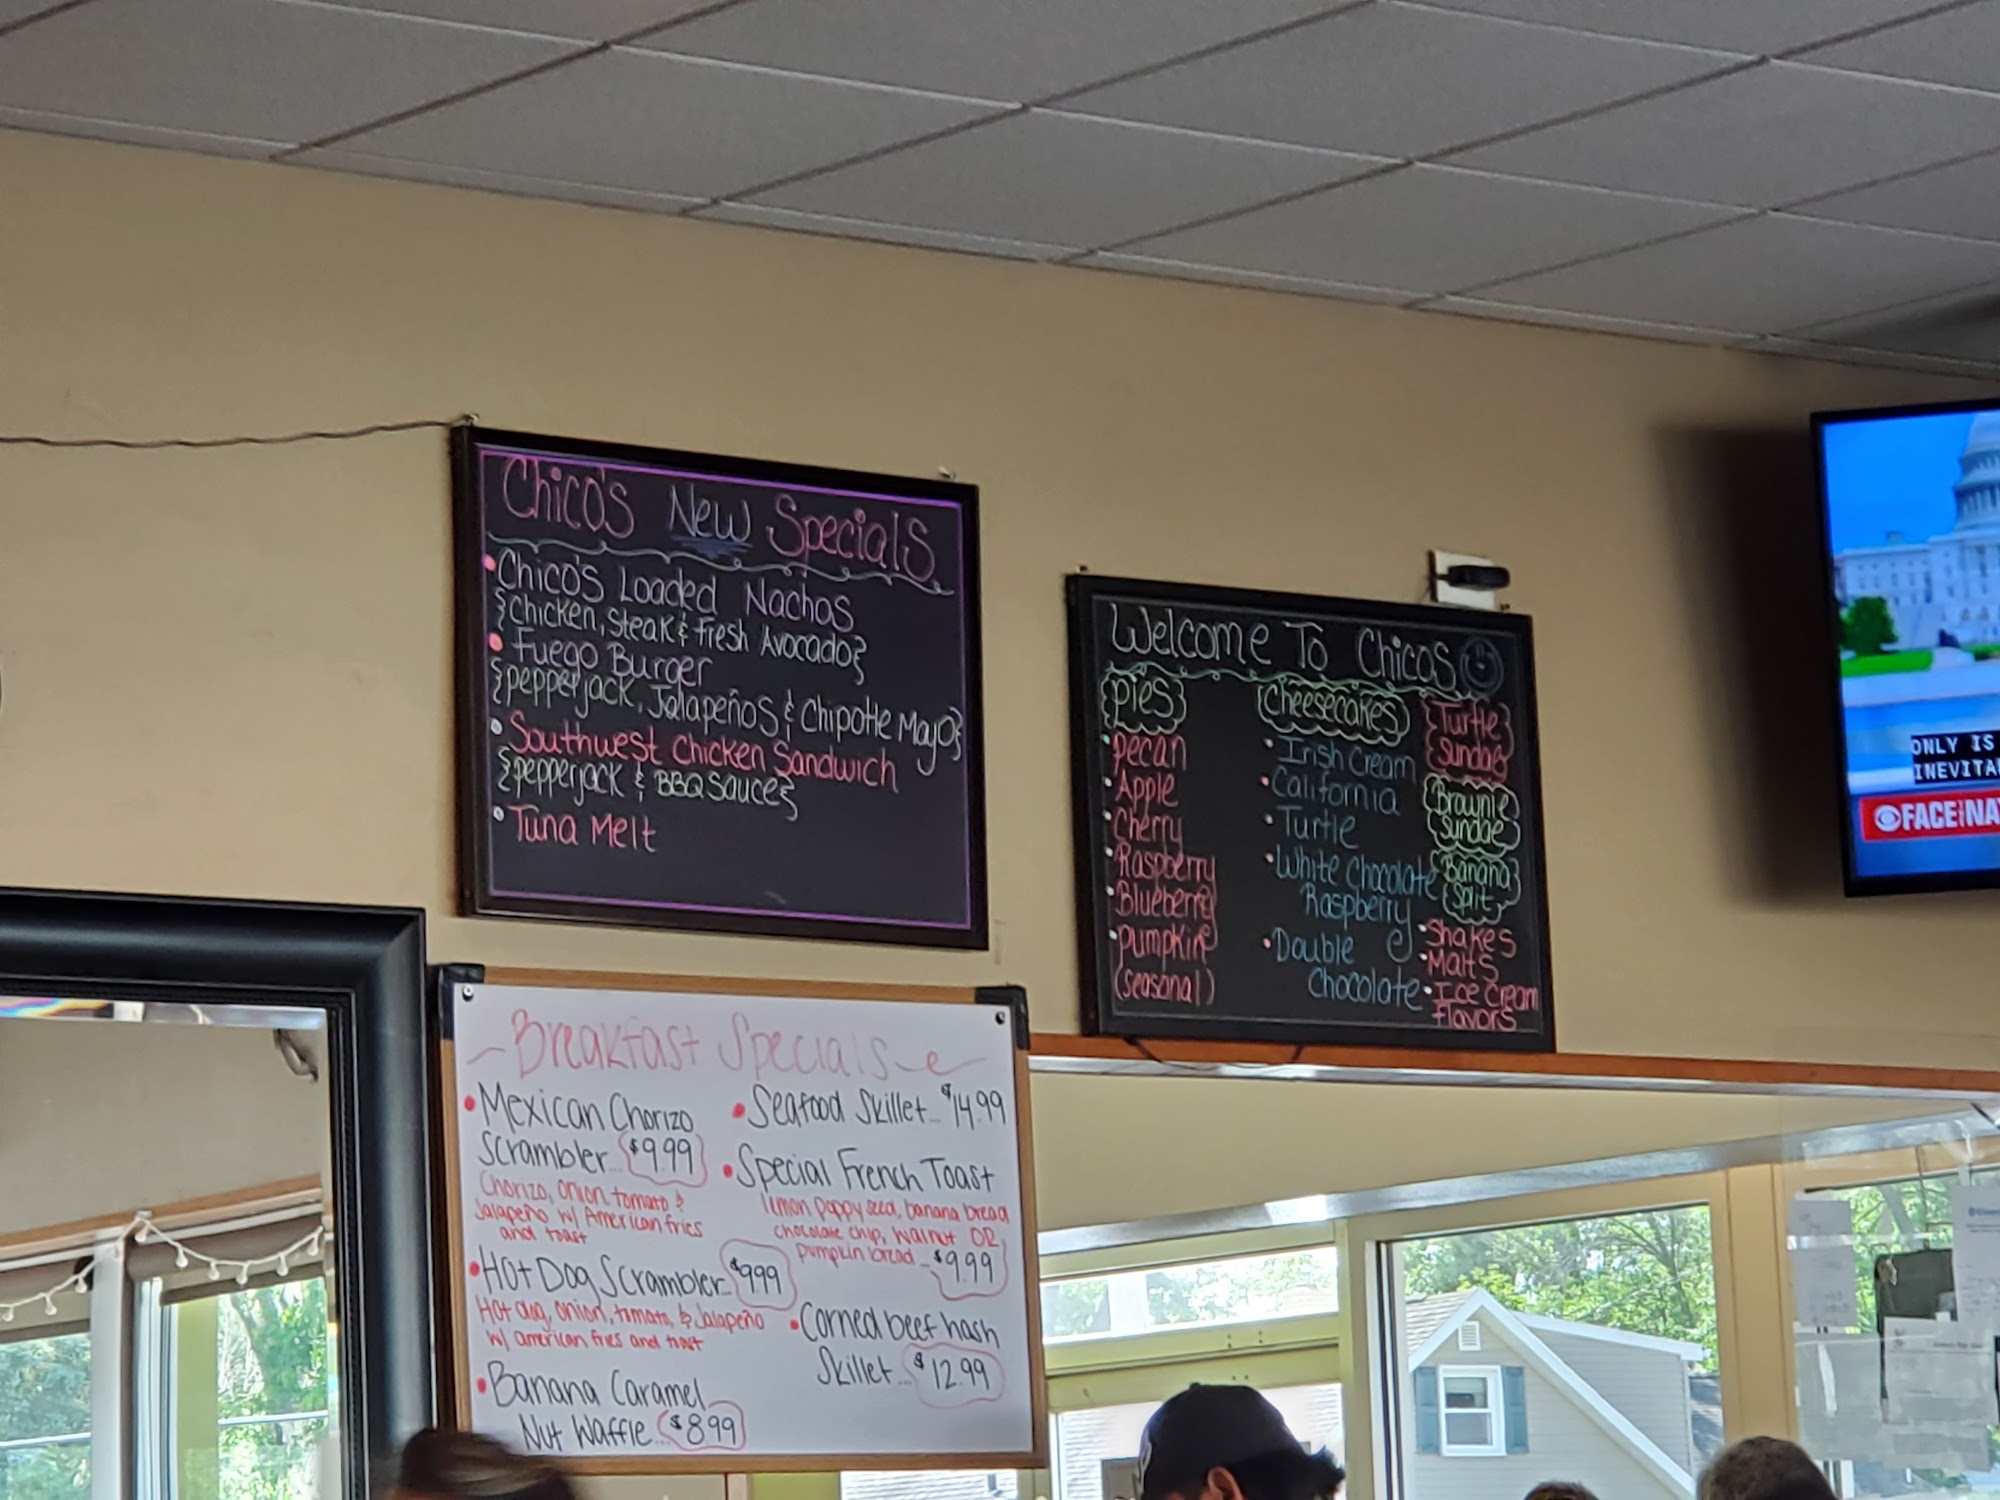 Chico's New Specials
• Chico's Loaded Nachos
{Chicken, Steak & Fresh Avocado}
• Fuego Burger
{pepperjack, Jalapeños & Chipotle Mayo}
• Southwest Chicken Sandwich
{pepperjack & BBQ Sauce}
• Tuna Melt
Welcome To Chicos
Pies
• Pecan
• Apple
• Cherry
• Raspberry
• Blueberry
• Pumpkin
(seasonal)
Cheesecakes
• Irish Cream
• California
• Turtle
• White Chocolate
Raspberry
• Double
Chocolate
Turtle
Sundae
Brownie
Sundae
Banana
Split
• Shakes
• Malts
• Ice Cream
flavors
ONLY IS
FACE THE NA
Breakfast Specials
• Mexican Chorizo
Scrambler... $9.99
Chorizo, onion, tomato &
Jalapeño w/ American fries
and toast
• Hot Dog Scrambler.. $9.99
Hot dog, onion, tomato, & Jalapeño
w/ american fries and toast
• Banana Caramel
Nut Waffle... $8.99
• Seafood Skillet... $14.99
• Special French Toast
lemon poppy seed, banana bread
chocolate chip, walnut OR
pumpkin bread ... $9.99
• Corned beef hash
Skillet ... $12.99